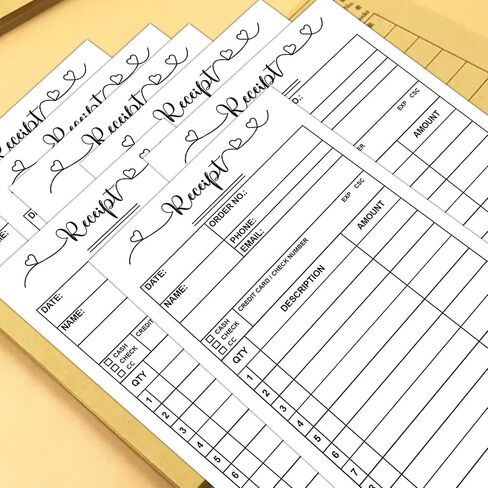 Receipt
Receipt
Receipt
Receipt
Receipt
EXP CSC
AMOUNT
Receipt
DATE:
NAME:
CASH
CHECK
CC
CREDIT
QTY
1
2
3
4
5
6
Receipt
ORDER NO.:
DATE:
PHONE:
NAME:
EMAIL:
CASH
CHECK
CC
CREDIT CARD / CHECK NUMBER
EXP CSC
QTY
DESCRIPTION
AMOUNT
1
2
3
4
5
6
7
8